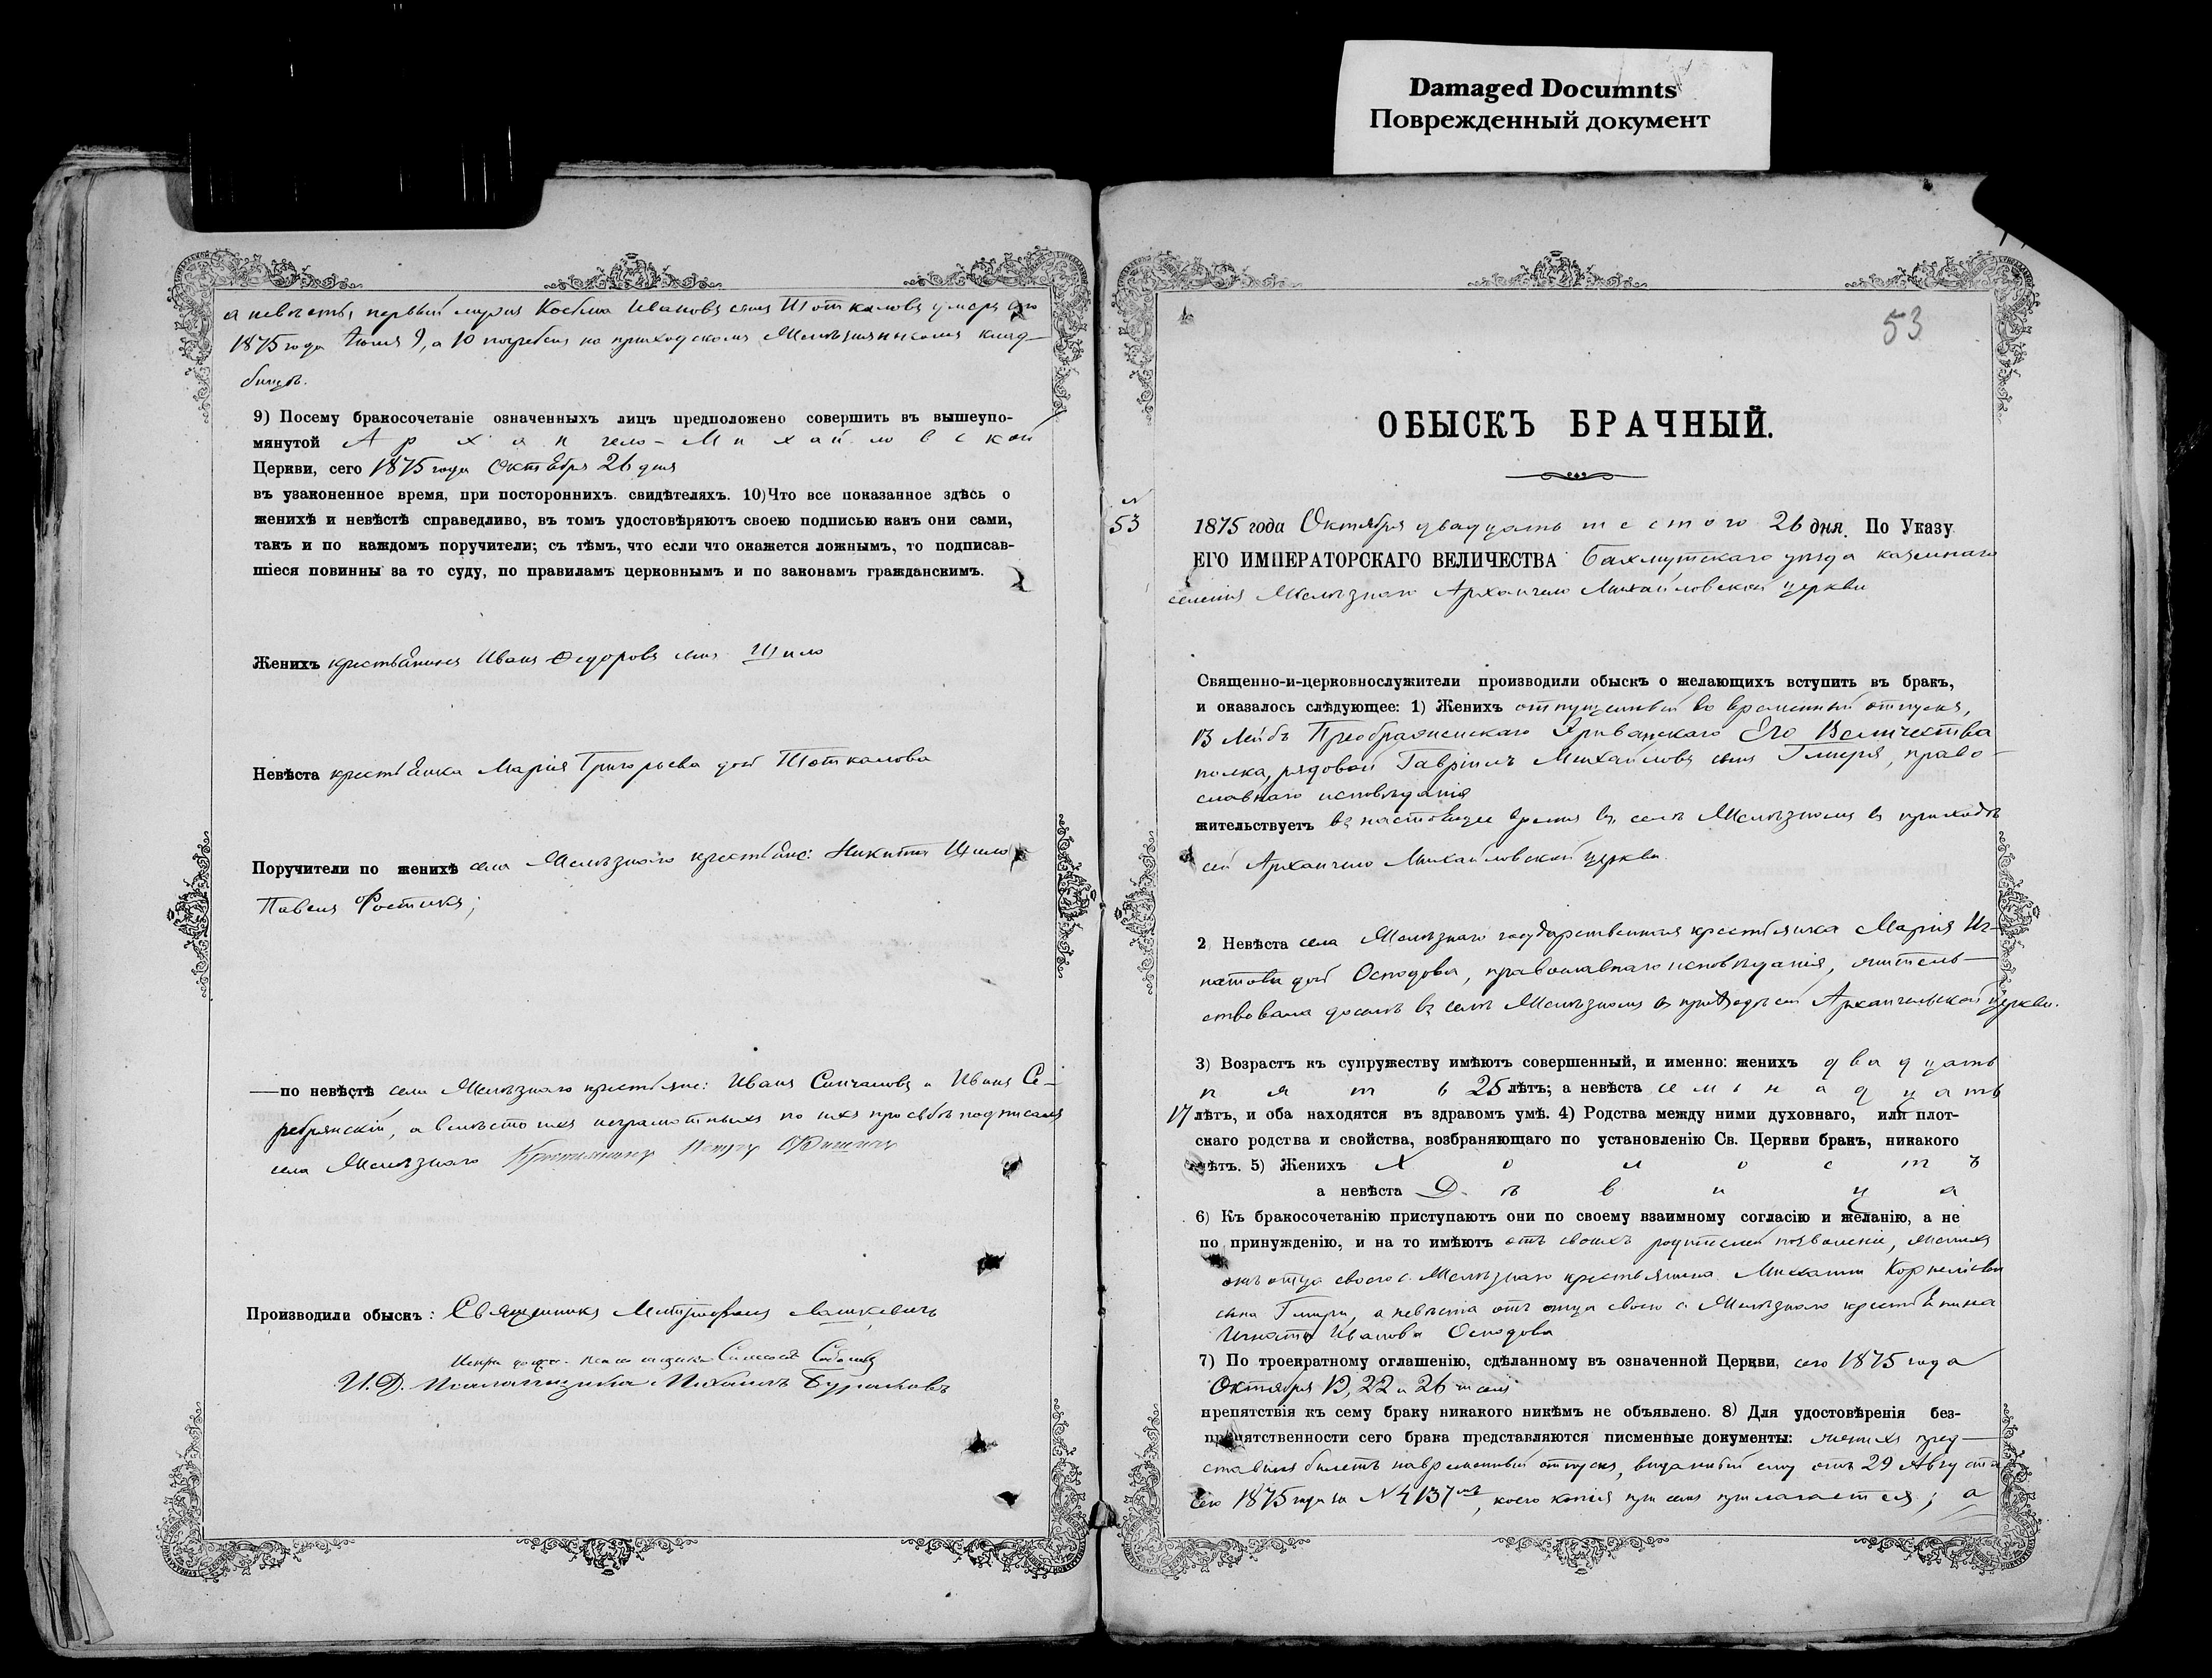 Damaged Documnts
Поврежденный документ
а невѣсты первый мужъ Косьма Ивановъ сынъ Шоткаловъ умеръ сего
1875 года Іюля 9, а 10 погребенъ на приходскомъ Желѣзнянскомъ клад-
бищѣ.
9) Посему бракосочетаніе означенныхъ лицъ предположено совершить въ вышеупо-
мянутой Архангело-Михайловской
Церкви, сего 1875 года Октября 26 дня
въ узаконенное время, при постороннихъ свидѣтеляхъ. 10) Что все показанное здѣсь о
женихѣ и невѣстѣ справедливо, въ томъ удостовѣряютъ своею подписью какъ они сами,
такъ и по каждомъ поручители; съ тѣмъ, что если что окажется ложнымъ, то подписав-
шіеся повинны за то суду, по правиламъ церковнымъ и по законамъ гражданскимъ.
Женихъ крестьянинъ Иванъ Ѳедоровъ сынъ Шило
Невѣста крестьянка Марія Григорьева дочь Шоткалова
Поручители по женихѣ села Желѣзнаго крестьяне: Никита Шило
Павелъ Фостикъ;
—по невѣстѣ села Желѣзнаго крестьяне: Иванъ и Иванъ Се-
ребрянскій, а вмѣсто ихъ неграмотныхъ по ихъ просьбѣ подписался
села Желѣзнаго Крестьянинъ Петръ
Производили обыскъ: Священникъ Митрофанъ Лашкевичъ
И. Д. Псаломщика Михаилъ Бураковъ
53
ОБЫСКЪ БРАЧНЫЙ.
№ 53
1875 года Октября двадцать шестого 26 дня. По Указу
ЕГО ИМПЕРАТОРСКАГО ВЕЛИЧЕСТВА Бахмутскаго уѣзда казеннаго
селенія Желѣзнаго Архангело Михайловской церкви
Священно-и-церковнослужители производили обыскъ о желающихъ вступить въ бракъ,
и оказалось слѣдующее: 1) Женихъ отпущенный во временный отпускъ,
13 Лейбъ Эриванскаго Его Величества
полка, рядовой Гавріилъ Михайловъ сынъ Гмиря, право-
славнаго исповѣданія
жительствуетъ въ настоящее время въ селѣ Желѣзномъ въ приходѣ
сей Архангело Михайловской церкви.
2) Невѣста села Желѣзнаго государственная крестьянка Марія Иг-
натова дочь Осподова, православнаго исповѣданія, житель-
ствовала доселѣ въ селѣ Желѣзномъ въ приходѣ сей Архангельской церкви.
3) Возрастъ къ супружеству имѣютъ совершенный, и именно: женихъ двадцать
пять 25 лѣтъ; а невѣста семьнадцать
17 лѣтъ, и оба находятся въ здравомъ умѣ. 4) Родства между ними духовнаго, или плот-
скаго родства и свойства, возбраняющаго по установленію Св. Церкви бракъ, никакого
нѣтъ. 5) Женихъ Холостъ
а невѣста Дѣвица
6) Къ бракосочетанію приступаютъ они по своему взаимному согласію и желанію, а не
по принужденію, и на то имѣютъ отъ своихъ родителей позволеніе, женихъ
отъ отца своего с. Желѣзнаго крестьянина Михаила Корнеліева
сына Гмири, а невѣста отъ отца своего с. Желѣзнаго крестьянина
Игната Иванова Осподова
7) По троекратному оглашенію, сдѣланному въ означенной Церкви, сего 1875 года
Октября 19, 22 и 26 чиселъ
препятствія къ сему браку никакого никѣмъ не объявлено. 8) Для удостовѣренія без-
препятственности сего брака представляются писменные документы: женихъ пред-
ставилъ билетъ на временный отпускъ, выданный ему отъ 29 Августа
сего 1875 года за № 4137мъ, коего копія при семъ прилагается; а